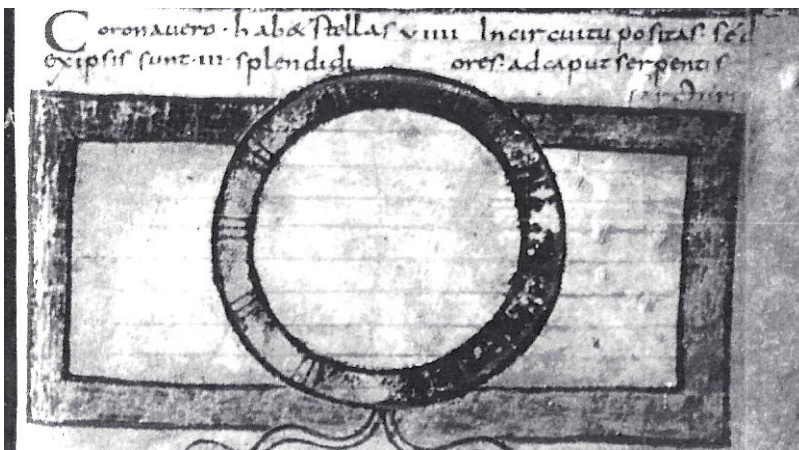 Corona uero · hab& stellas viiii Incircuitu positas. sed
exipsis sunt · iii · splendidi ores. ad caput serpentis